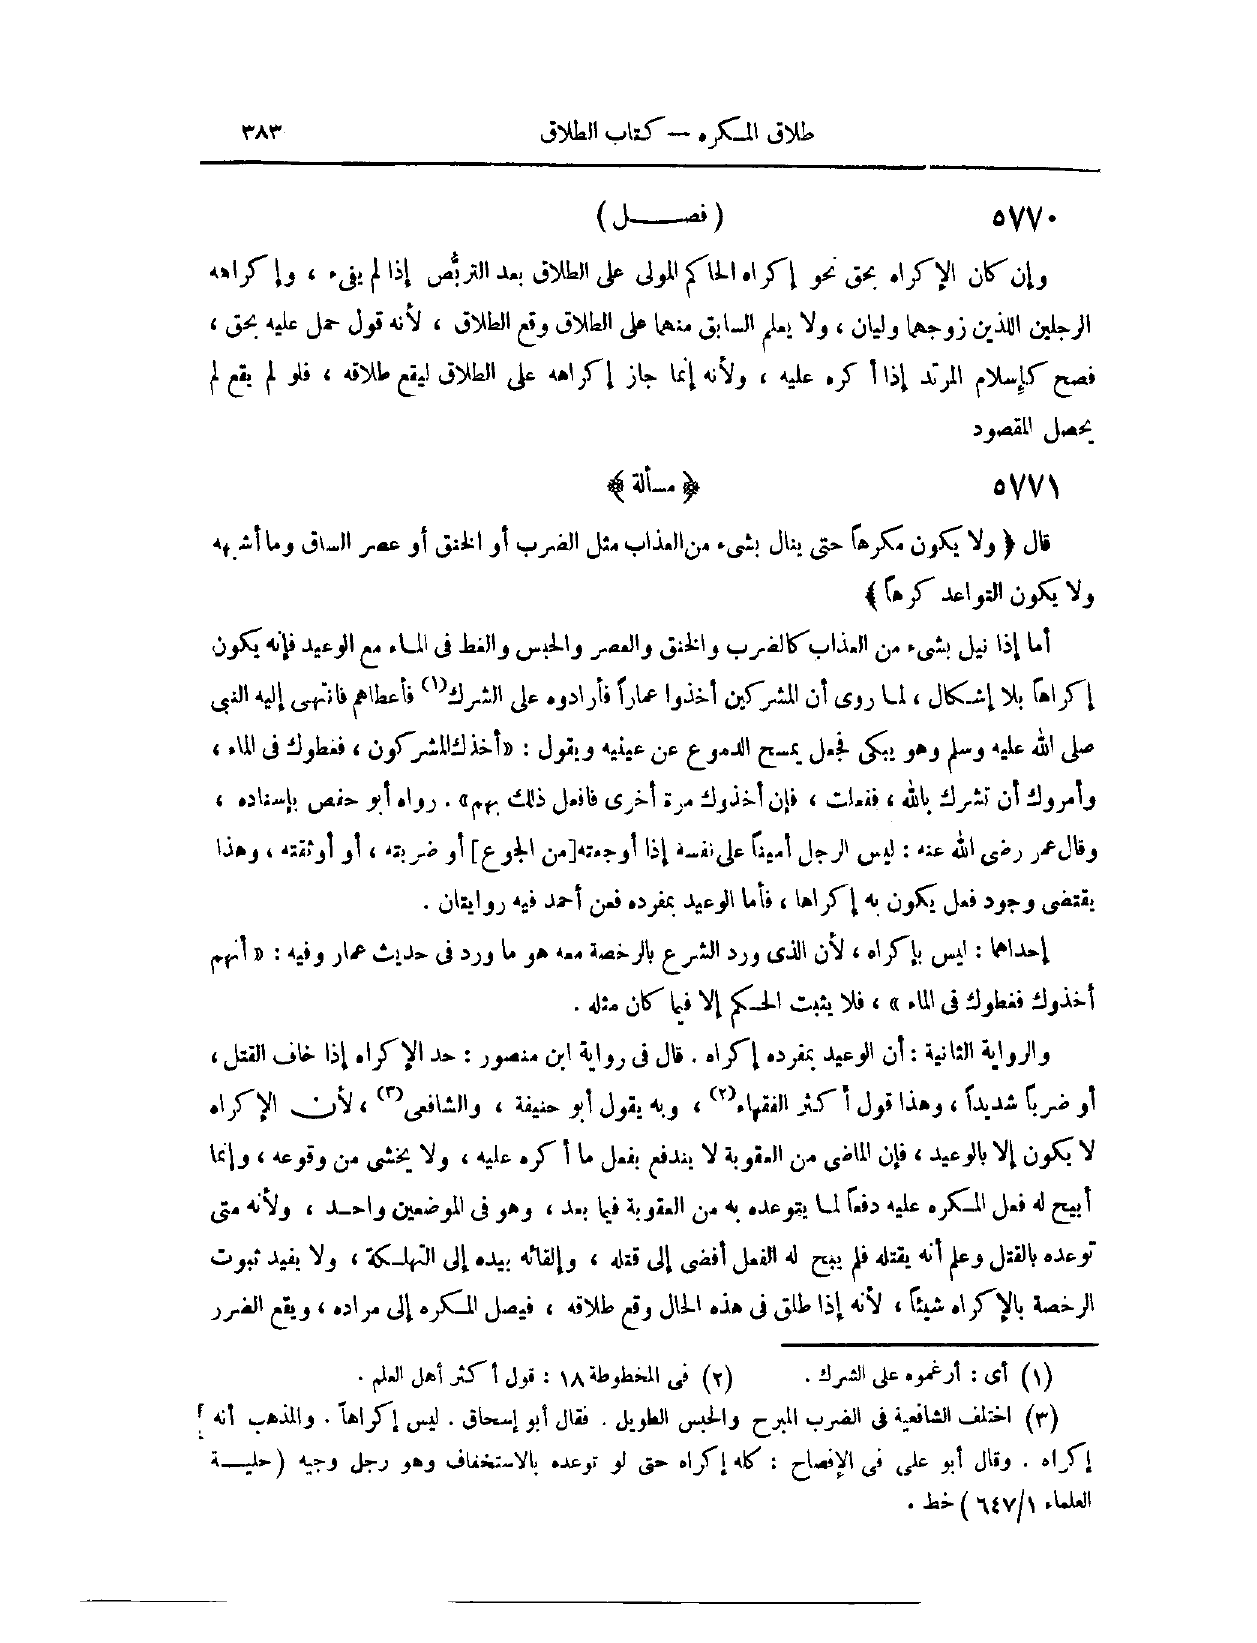 طلاق المكره — كتاب الطلاق ٣٨٣
٥٧٧٠ ( فصل )
وإن كان الإكراه بحق نحو إكراه الحاكم المولى على الطلاق بعد التربُّص إذا لم يفىء ، وإكراهه
الرجلين اللذين زوجهما وليان ، ولا يعلم السابق منهما على الطلاق وقع الطلاق ، لأنه قول حمل عليه بحق ،
فصح كإسلام المرتد إذا أكره عليه ، ولأنه إنما جاز إكراهه على الطلاق ليقع طلاقه ، فلو لم يقع لم
يحصل المقصود
٥٧٧١ ﴿ مسألة ﴾
قال ﴿ ولا يكون مكرهاً حتى ينال بشىء من العذاب مثل الضرب أو الخنق أو عصر الساق وما أشبهه
ولا يكون التواعد كرهاً ﴾
أما إذا نيل بشىء من العذاب كالضرب والخنق والعصر والحبس والغط فى الماء مع الوعيد فإنه يكون
إكراهاً بلا إشكال ، لما روى أن المشركين أخذوا عماراً فأرادوه على الشرك(١) فأعطاهم فانتهى إليه النبى
صلى الله عليه وسلم وهو يبكى فجعل يمسح الدموع عن عينيه ويقول : «أخذك المشركون ، فغطوك فى الماء ،
وأمروك أن تشرك بالله ، ففعلت ، فإن أخذوك مرة أخرى فافعل ذلك بهم» . رواه أبو حفص بإسناده ،
وقال عمر رضى الله عنه : ليس الرجل أميناً على نفسه إذا أوجعته [من الجوع] أو ضربته ، أو أوثقته ، وهذا
يقتضى وجود فعل يكون به إكراها ، فأما الوعيد بمفرده فعن أحمد فيه روايتان .
إحداهما : ليس بإكراه ، لأن الذى ورد الشرع بالرخصة معه هو ما ورد فى حديث عمار وفيه : « أنهم
أخذوك فغطوك فى الماء » ، فلا يثبت الحكم إلا فيما كان مثله .
والرواية الثانية : أن الوعيد بمفرده إكراه . قال فى رواية ابن منصور : حد الإكراه إذا خاف القتل ،
أو ضرباً شديداً ، وهذا قول أكثر الفقهاء(٢) ، وبه يقول أبو حنيفة ، والشافعى(٣) ، لأن الإكراه
لا يكون إلا بالوعيد ، فإن الماضى من العقوبة لا يندفع بفعل ما أكره عليه ، ولا يخشى من وقوعه ، وإنما
أبيح له فعل المكره عليه دفعاً لما يتوعده به من العقوبة فيما بعد ، وهو فى الموضعين واحد ، ولأنه متى
توعده بالقتل وعلم أنه يقتله فلم يبح له الفعل أفضى إلى قتله ، وإلقائه بيده إلى التهلكة ، ولا يفيد ثبوت
الرخصة بالإكراه شيئاً ، لأنه إذا طلق فى هذه الحال وقع طلاقه ، فيصل المكره إلى مراده ، ويقع الضرر
(١) أى : أرغموه على الشرك . (٢) فى المخطوطة ١٨ : قول أكثر أهل العلم .
(٣) اختلف الشافعية فى الضرب المبرح والحبس الطويل . فقال أبو إسحاق . ليس إكراهاً . والمذهب أنه
إكراه . وقال أبو على فى الإفصاح : كله إكراه حتى لو توعده بالاستخفاف وهو رجل وجيه ( حلية
العلماء ٦٤٧/١ ) خط .